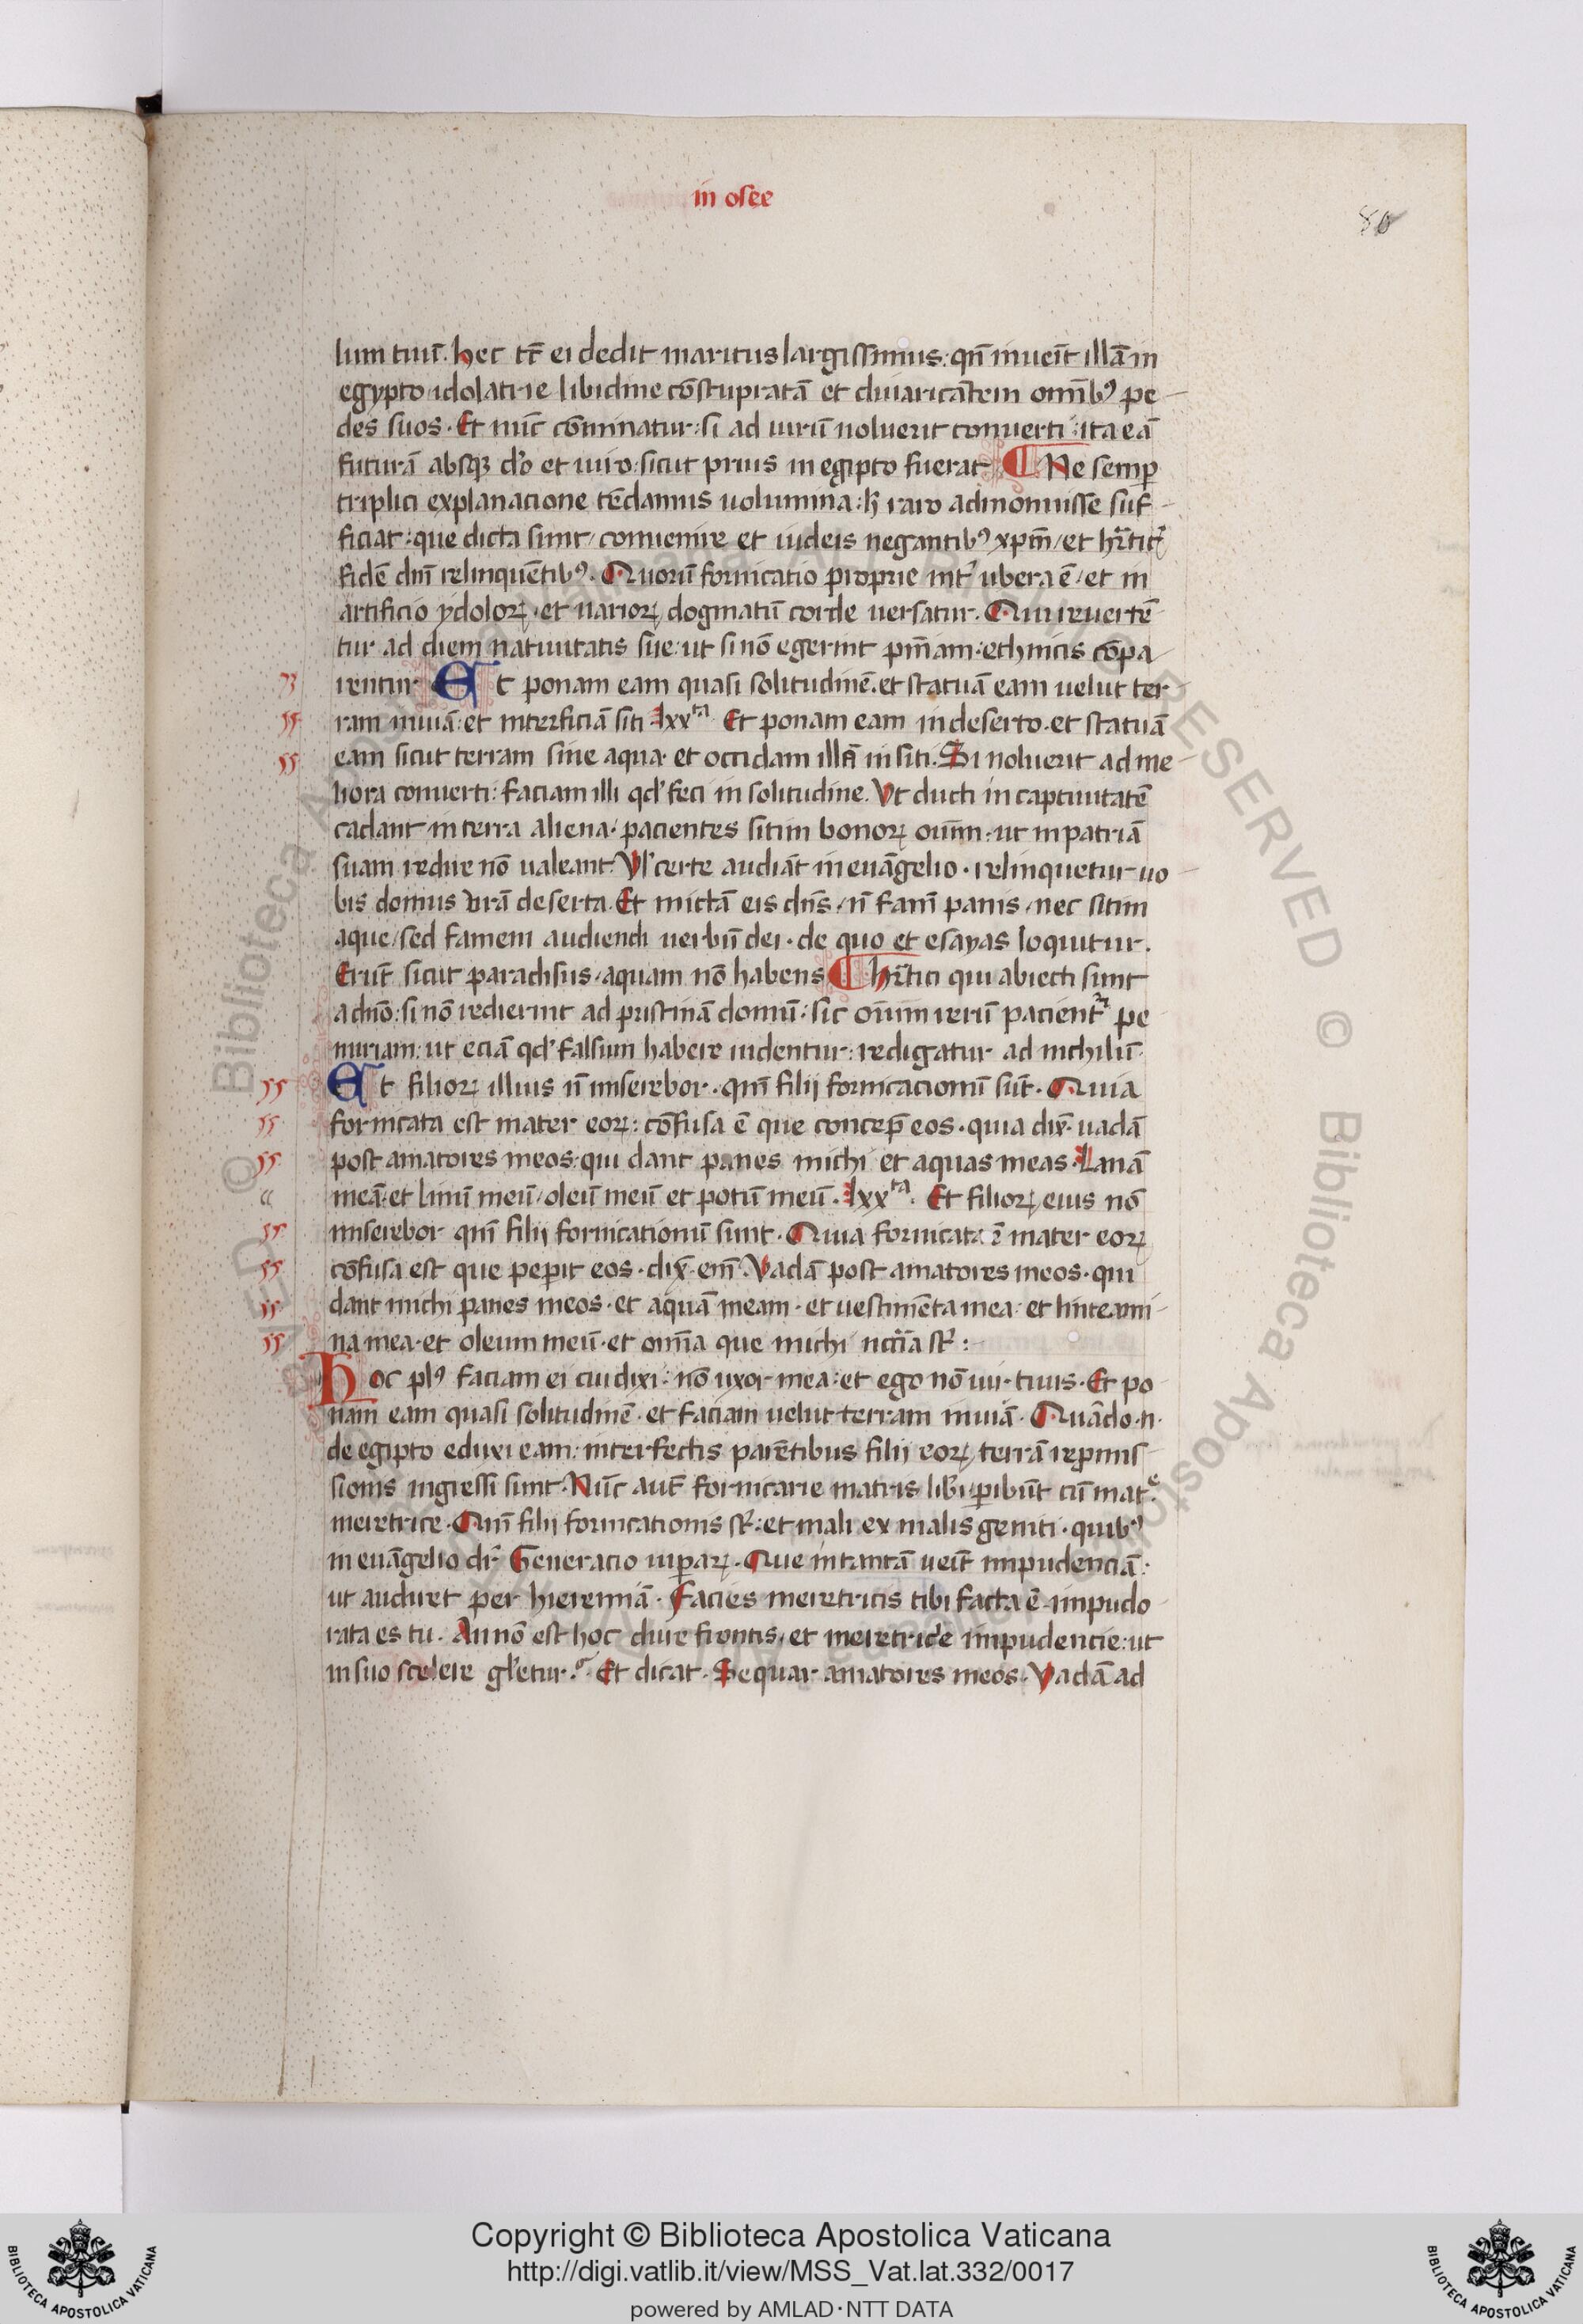 in osee
80
lum tuū. hec tn̄ ei dedit maritus largissimus: qn̄ inueīt illā in
egypto idolatrie libidine cōstupratā et diuaricātem omīb⁹ pe
des suos. Et nūc cōminatur: si ad uirū noluerit conuerti: ita eā
futurā absqꝫ do̅ et uiro: sicut prius in egipto fuerat ¶ Ne semꝑ
triplici explanacione tēdamus uolumina: h̄ raro admonuisse suf
ficiat: que dicta sunt/ conuenire et iudeis negantib⁹ xp̄m/ et hr̄tic̄
fidē dn̄i relinquētib⁹. Quorū fornicatio proprie int᷑ ubera ē/ et in
artificio ydoloꝝ, et uarioꝝ dogmatū corde uersatur. Qui reuertē
tur ad diem natiuitatis sue: ut si nō egerint pn̄iam: ethnicis cōpa
rentur Et ponam eam quasi solitudinē. et statuā eam uelut ter
ram inuiā: et interficiā siti lxxᵗᵃ Et ponam eam in deserto. et statuā
eam sicut terram sine aqua. et occidam illā in siti. Si noluerit ad me
liora conuerti: faciam illi qd' feci in solitudine. Vt ducti in captiuitatē
cadant in terra aliena. pacientes sitim bonoꝝ oīum: ut in patriā
suam redire nō ualeant. Vl' certe audiāt in euāngelio. relinquetur uo
bis domus ur̄a deserta. Et mictā eis dn̄s/ n̄ famī panis/ nec sitim
aque/ sed famem audiendi uerbū dei. de quo et esayas loquitur.
Erūt sicut paradisus/ aquam nō habens ¶ hr̄tici qui abiecti sunt
a dn̄o: si nō redierint ad pristinā domū: sic oīum rerū pacient᷑ pe
nuriam: ut eciā qd' falsum habere uidentur: redigatur ad nichilū.
Et filioꝝ illius n̄ miserebor. qm̄ filij fornicacionū sūt. Quia
fornicata est mater eoꝝ: cōfusa ē que concep̄ eos. quia dix̄. uadā
post amatores meos: qui dant panes michi et aquas meas. Lanā
meā: et linū meū/ oleū meū et potū meū. lxxᵗᵃ. Et filioꝝ eius nō
miserebor qm̄ filij fornicationū sunt. Quia fornicata ē mater eoꝝ
cōfusa est que peꝑit eos. dix̄. em̄. Vadā post amatores meos. qui
dant michi panes meos. et aquā meam. et uestimēta mea: et linteami
na mea. et oleum meū. et omīa que michi nccīa st᷑:
Hoc pl⁹ faciam ei cui dixi: nō uxor mea: et ego nō uir tuus. Et po
nam eam quasi solitudinē. et faciam uelut terram inuiā. Quādo .n.
de egipto eduxi eam: interfectis parētibus filij eoꝝ terrā repmis
sionis ingressi sunt. Nūc aut̄ fornicarie matris lib᷑i ꝑibūt cū matᵉ.
meretrice. Qm̄ filij fornicationis st᷑: et mali ex malis geniti. quib⁹
in euāngelio dr̄ Generacio uiꝑaꝝ. Que in tantā ueīt impudenciā:
ut audiret per hieremiā. Facies meretricis tibi facta ē. impudo
rata es tu. An nō est hoc dure frontis, et meretrice impudencie: ut
in suo scelere gl'etur.? Et dicat. Sequar amatores meos. Vadā ad
© Biblioteca Apostolica Vaticana. ALL RIGHTS RESERVED
Copyright © Biblioteca Apostolica Vaticana
http://digi.vatlib.it/view/MSS_Vat.lat.332/0017
powered by AMLAD·NTT DATA
BIBLIOTECA APOSTOLICA VATICANA
BIBLIOTECA APOSTOLICA VATICANA